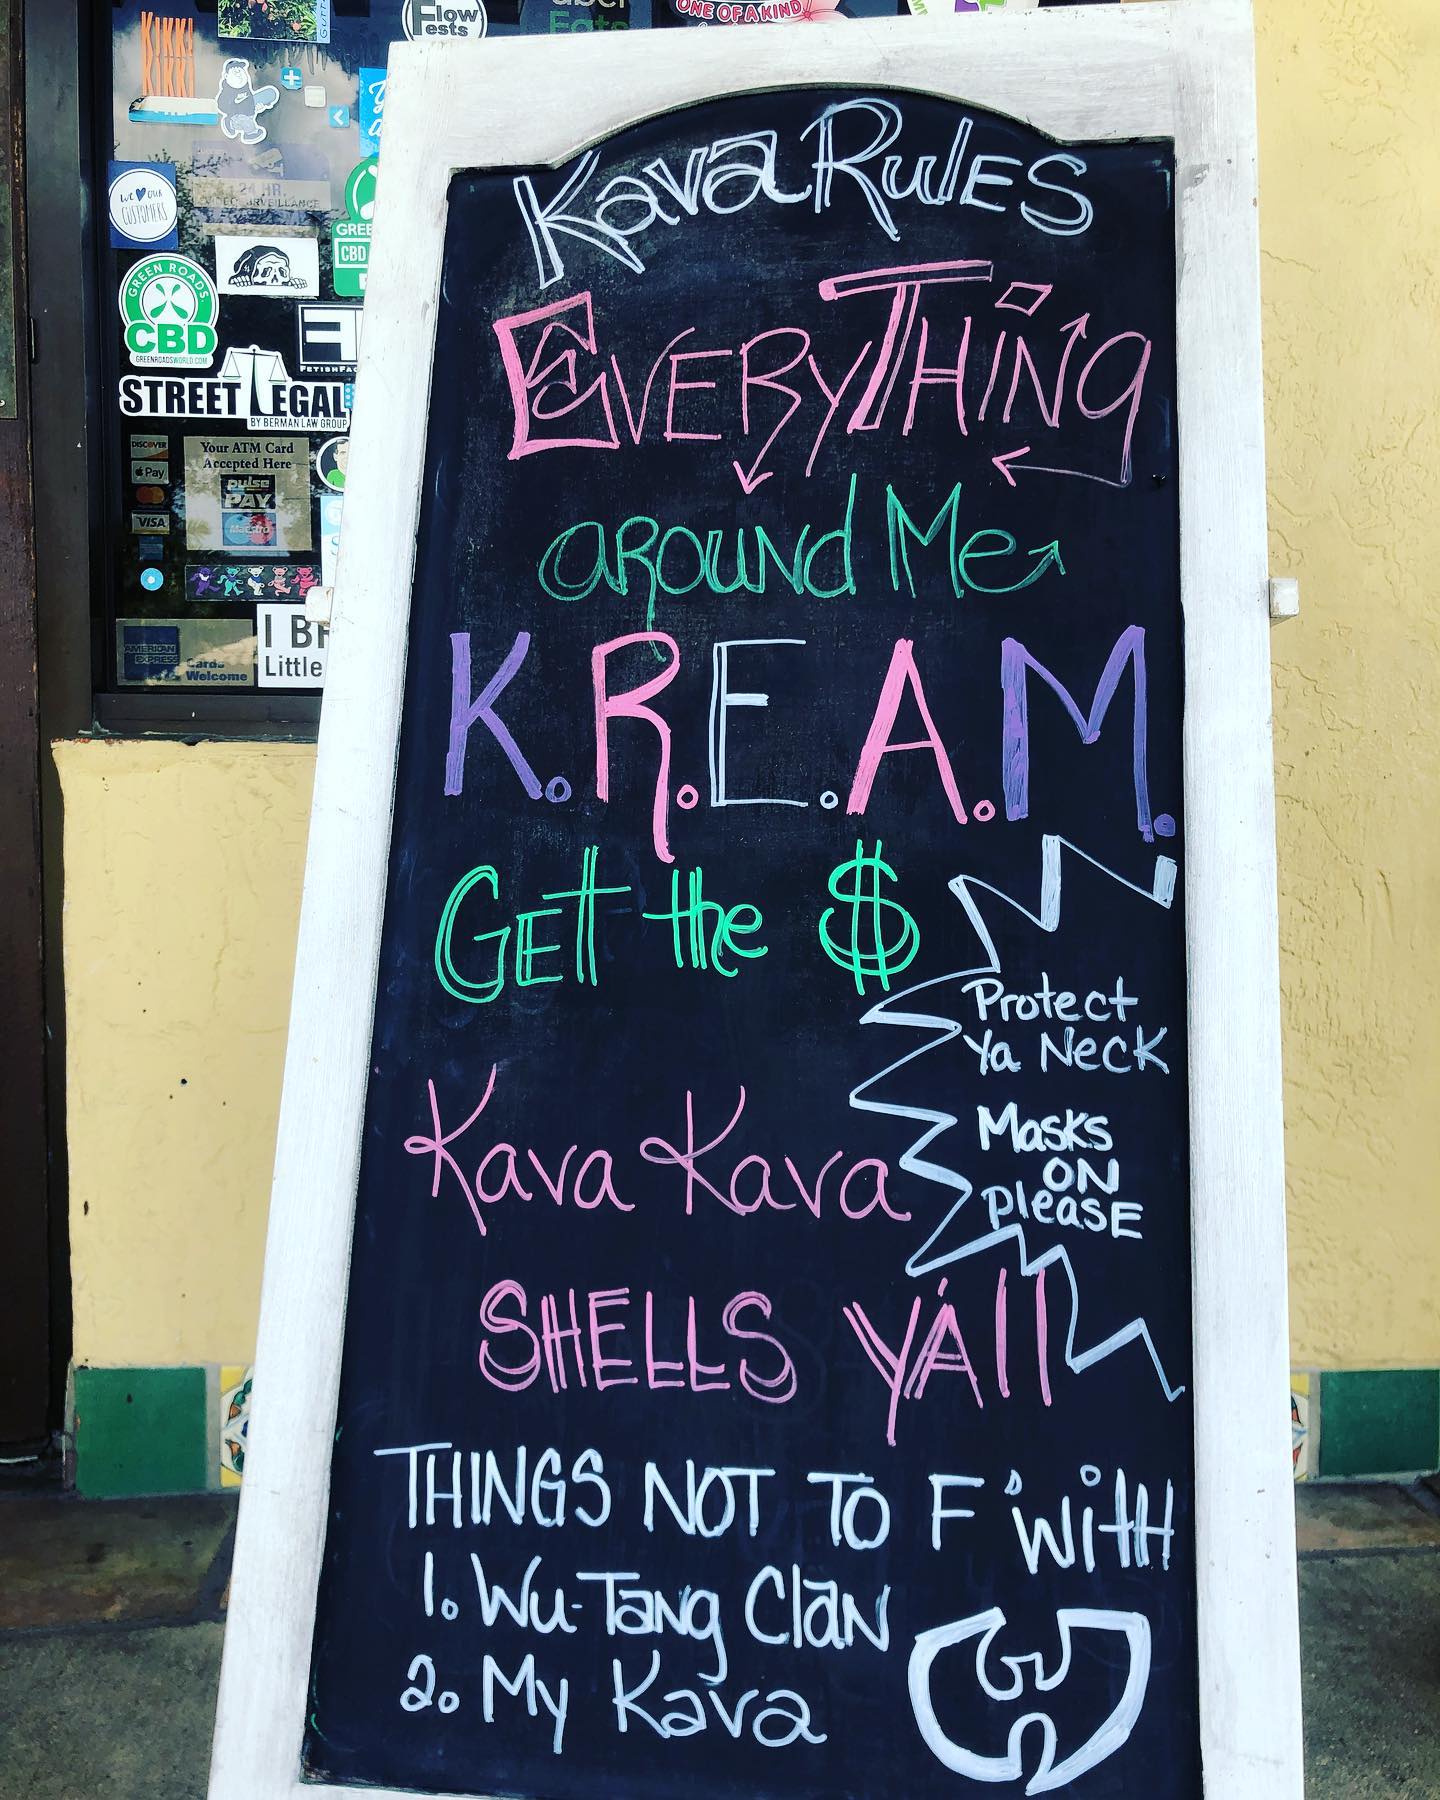 KIKKI
KIKKI
Flow
Fests
uber
Eats
ONE OF A KIND
WE OUR
CUSTOMERS
24 HR.
VIDEO SURVEILLANCE
GREEN ROADS.
CBD
GREENROADSWORLD.COM
GREE
CBD
STREET LEGAL
BY BERMAN LAW GROUP
DISCOVER
Pay
VISA
Your ATM Card
Accepted Here
pulse
PAY
Maestro
AMERICAN
EXPRESS
Cards
Welcome
I
Little
Kava RulES
EVERyTHiNg
aRouNd Me
K.R.E.A.M.
GEt the $
Protect
Ya NecK
Masks
ON
pleasE
Kava Kava
SHELLS YA'll
THINGS NOT TO F' witH
1. Wu-Tang ClaN
2. My Kava